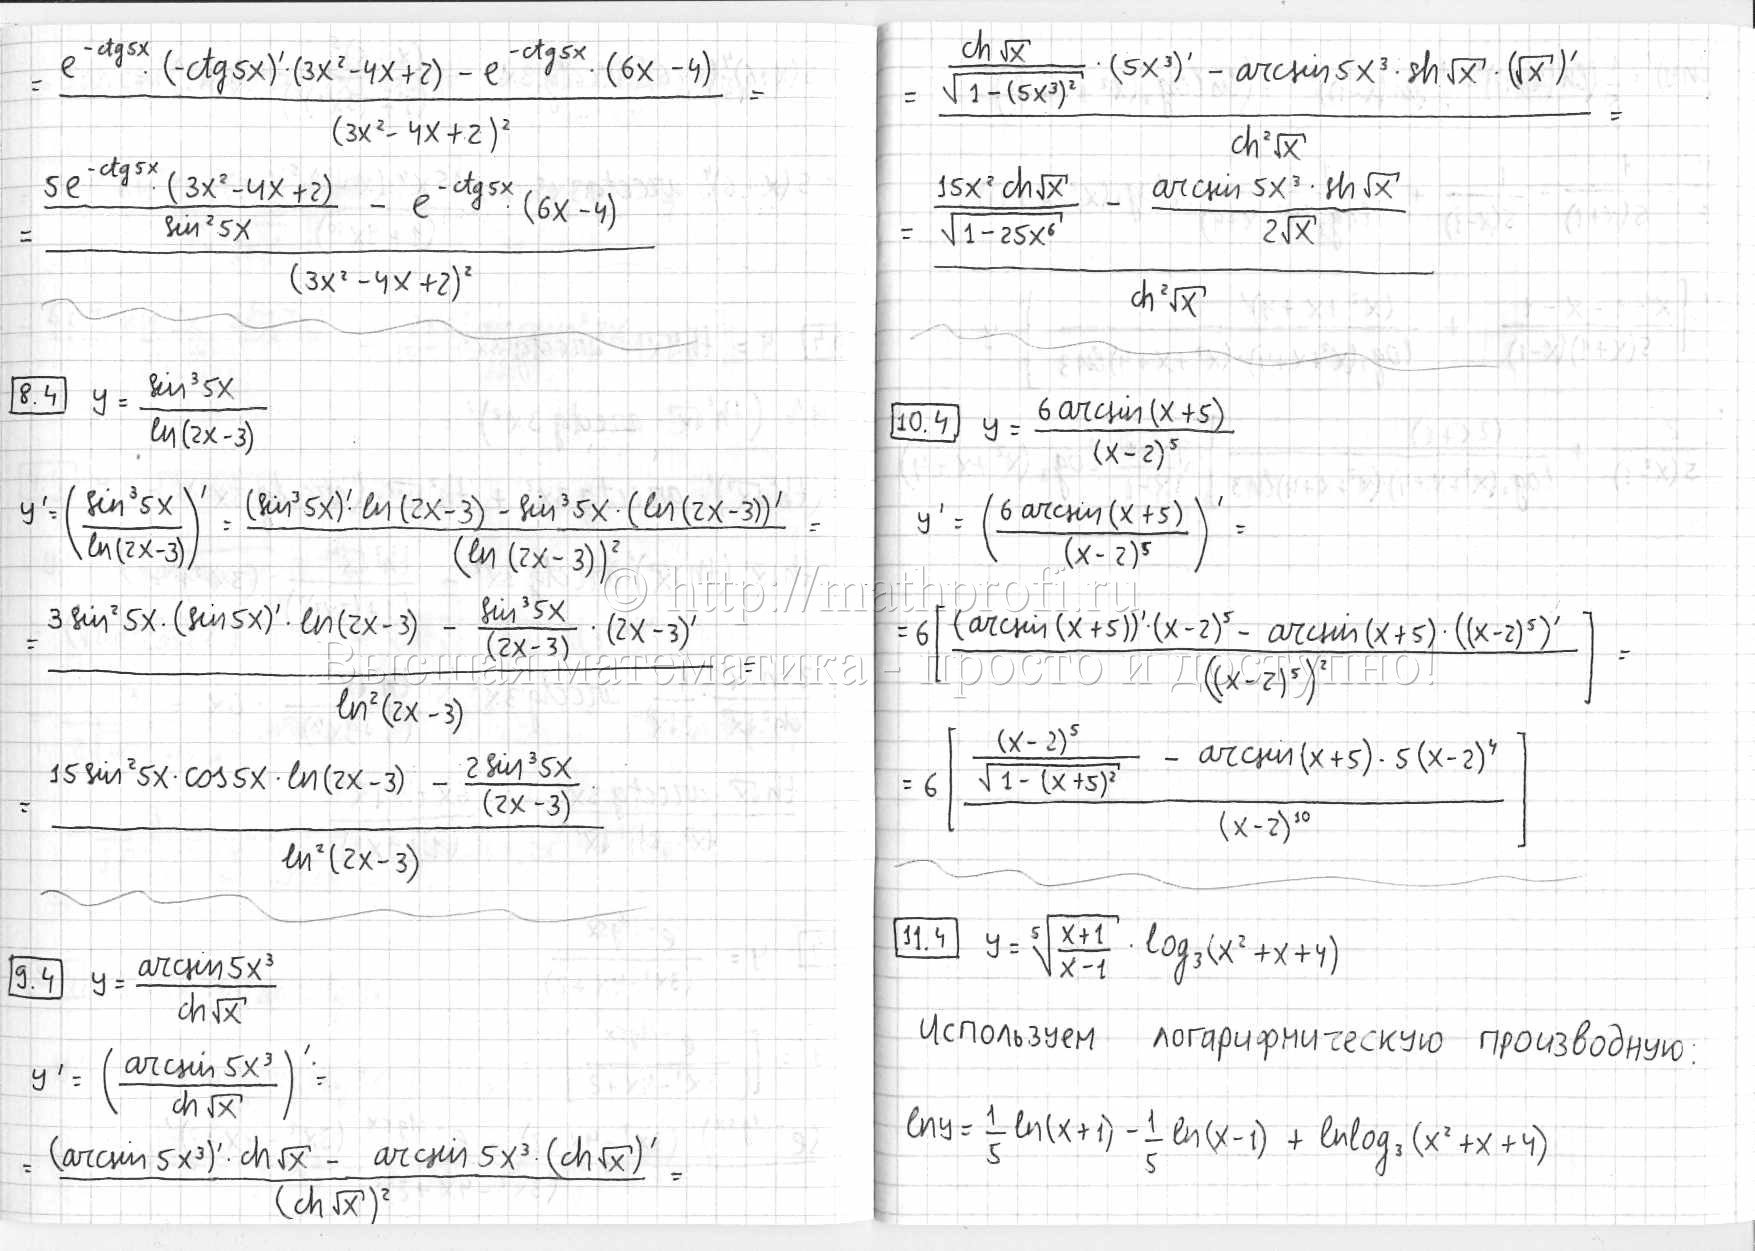 = (e^(-ctg5x) · (-ctg5x)' · (3x²-4x+2) - e^(-ctg5x) · (6x-4)) / (3x²-4x+2)² =
= (5e^(-ctg5x) · (3x²-4x+2) / sin²5x - e^(-ctg5x) · (6x-4)) / (3x²-4x+2)²
8.4 y = sin³5x / ln(2x-3)
y' = (sin³5x / ln(2x-3))' = ((sin³5x)' · ln(2x-3) - sin³5x · (ln(2x-3))') / (ln(2x-3))² =
= (3sin²5x · (sin5x)' · ln(2x-3) - sin³5x / (2x-3) · (2x-3)') / ln²(2x-3) =
= (15sin²5x · cos5x · ln(2x-3) - 2sin³5x / (2x-3)) / ln²(2x-3)
9.4 y = arcsin5x³ / ch√x
y' = (arcsin5x³ / ch√x)' =
= ((arcsin5x³)' · ch√x - arcsin5x³ · (ch√x)') / (ch√x)² =
= (ch√x / √(1-(5x³)²) · (5x³)' - arcsin5x³ · sh√x · (√x)') / ch²√x =
= (15x² ch√x / √(1-25x⁶) - arcsin5x³ · sh√x / 2√x) / ch²√x
10.4 y = 6arcsin(x+5) / (x-2)⁵
y' = (6arcsin(x+5) / (x-2)⁵)' =
= 6[((arcsin(x+5))' · (x-2)⁵ - arcsin(x+5) · ((x-2)⁵)') / ((x-2)⁵)²] =
= 6[((x-2)⁵ / √(1-(x+5)²) - arcsin(x+5) · 5(x-2)⁴) / (x-2)¹⁰]
11.4 y = ⁵√((x+1)/(x-1)) · log₃(x²+x+4)
Используем логарифмическую производную:
lny = 1/5 ln(x+1) - 1/5 ln(x-1) + lnlog₃(x²+x+4)
© http://mathprofi.ru
Высшая математика - просто и доступно!